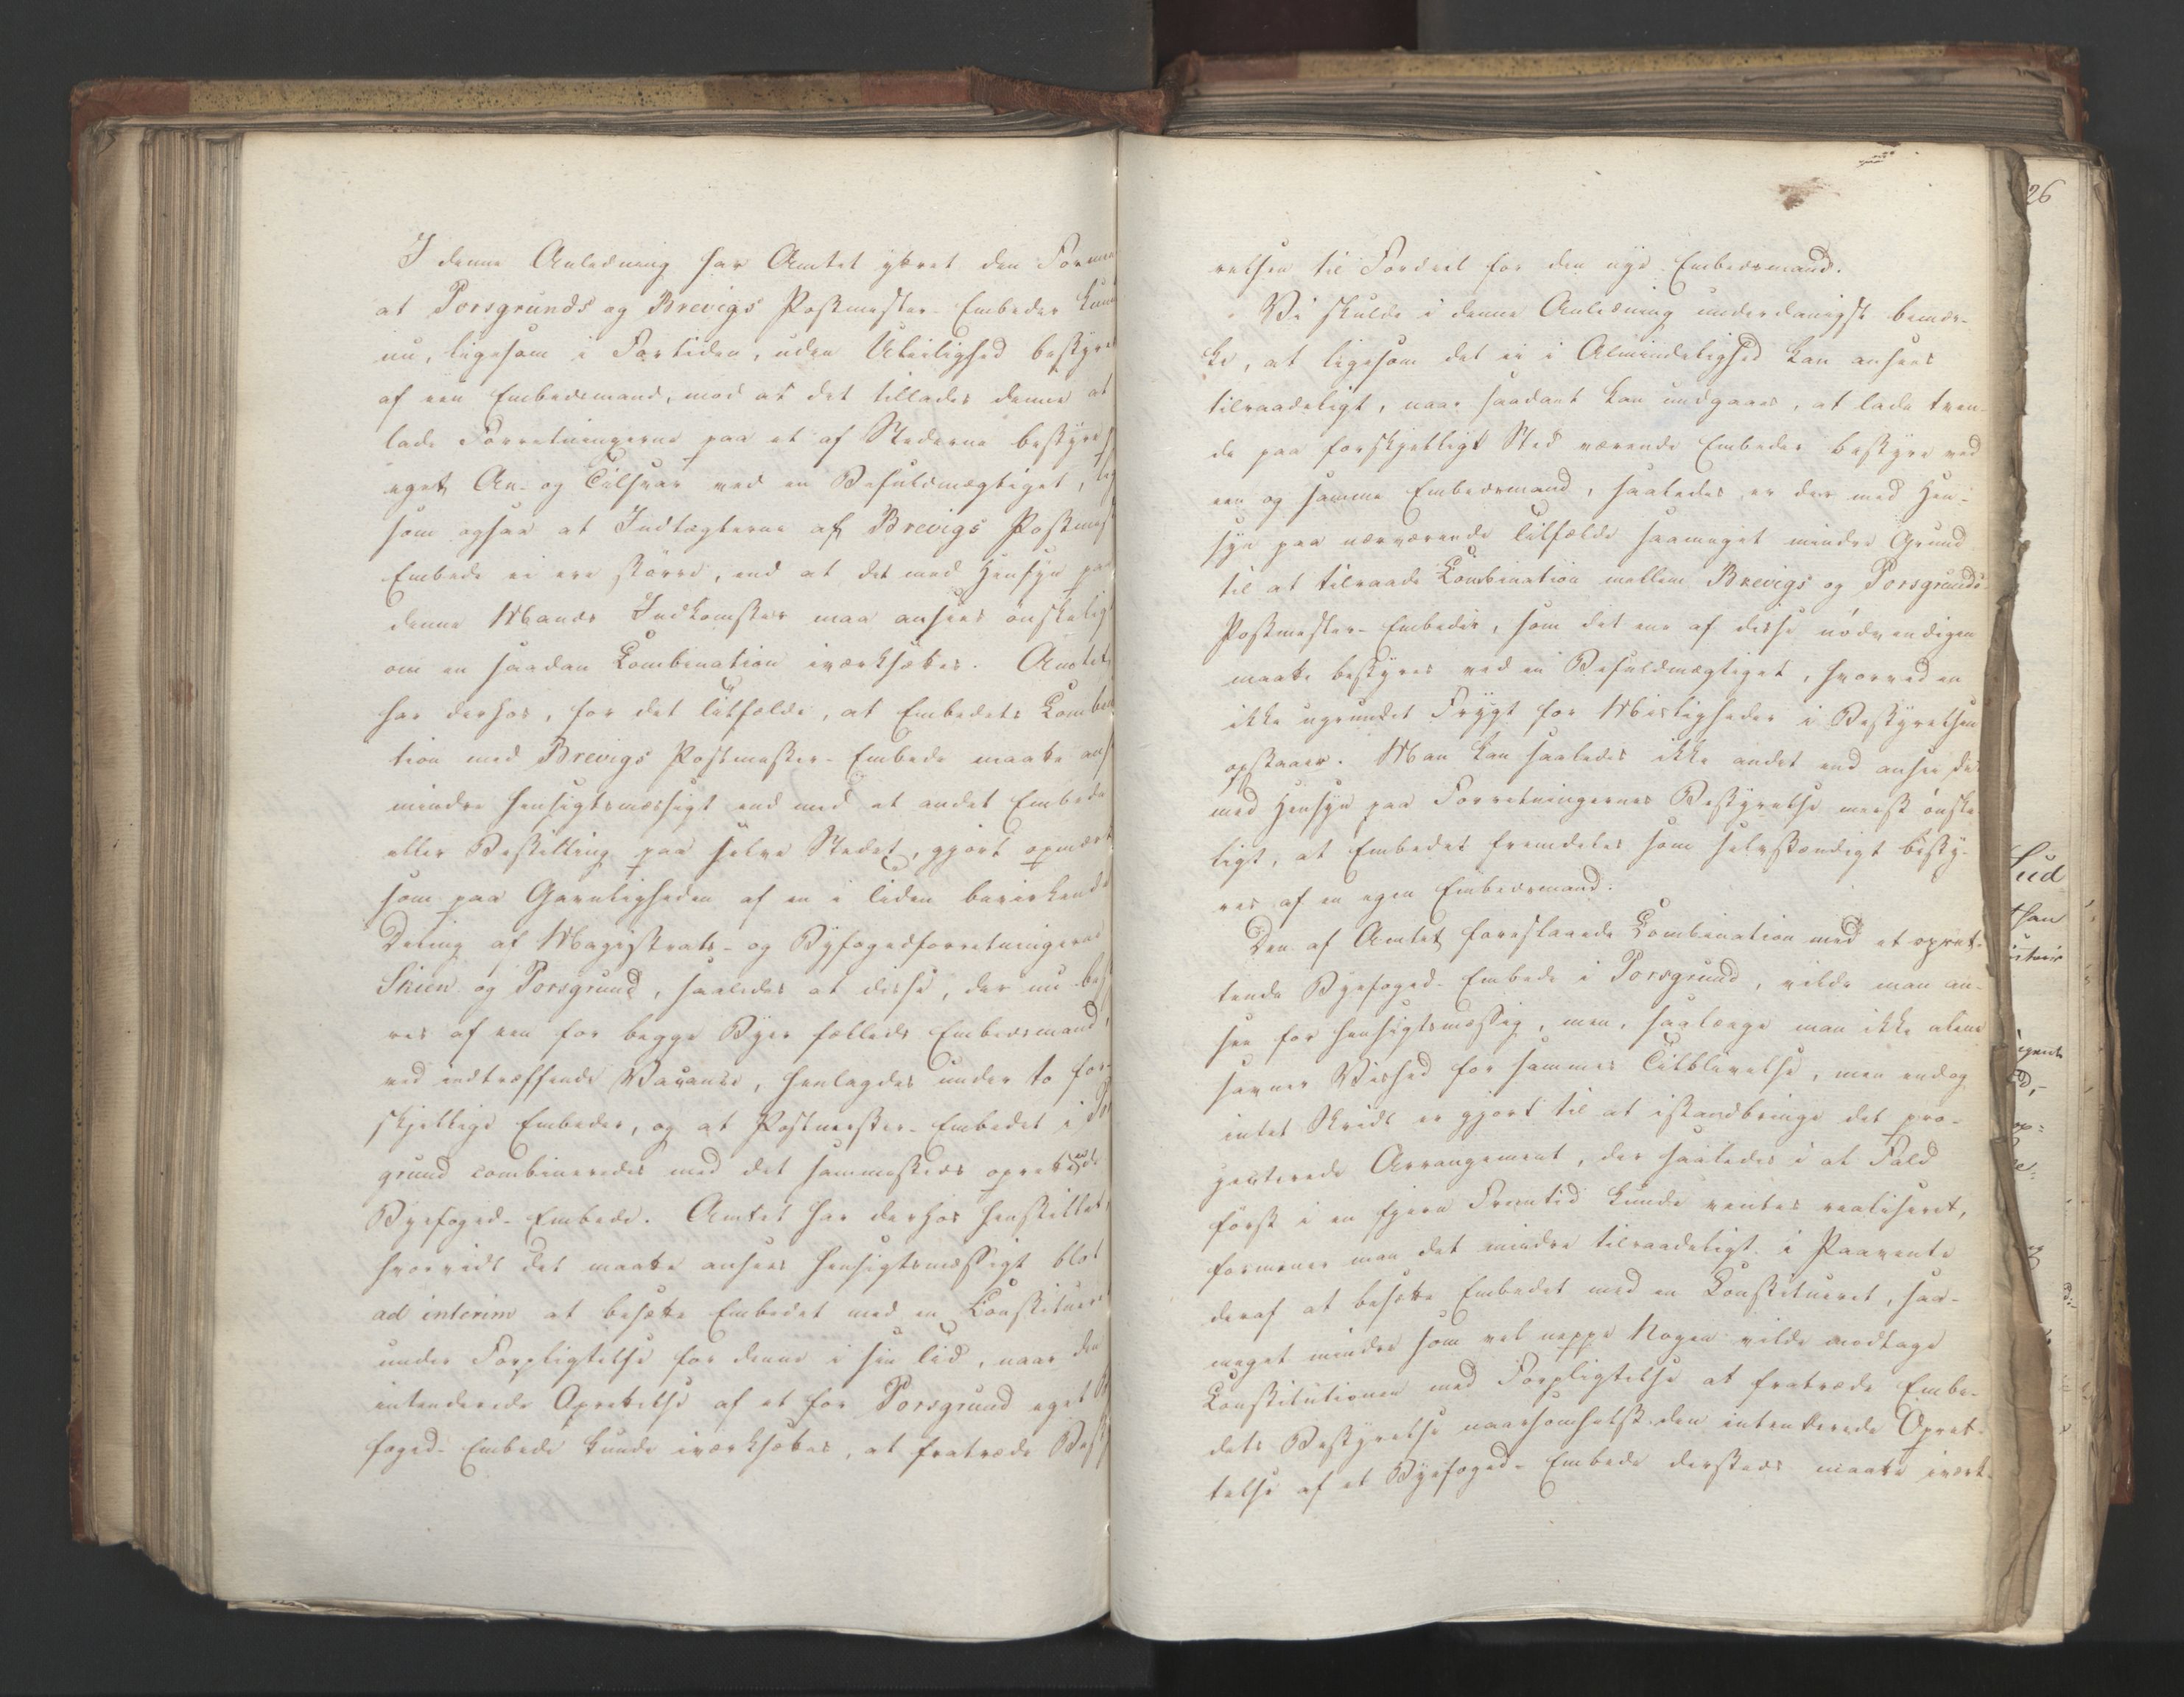 I denne Anledning har Amtet yttret den Formen
at Porsgrunds og Brevigs Postmester-Embeder kun
nu, ligesom i Fortiden, uden Uleilighed bestyres
af een Embedsmand, mod at det tillades denne at
lade Forretningerne paa et af Stederne bestyre
eget An- og Tilsvar ved en Befuldmægtiget, lige
som ogsaa at Indtægterne af Brevigs Postmest
Embede ei ere større, end at det med Hensyn paa
denne Mands Indkomster maa ansees ønskeligt
om en saadan Combination iværksættes. Amtet
har derhos, for det Tilfælde, at Embedets Combina
tion med Brevigs Postmester-Embede maatte ans
mindre hensigtsmæssigt end med et andet Embede
eller Bestilling paa selve Stedet, gjort opmærk
som paa Gavnligheden af en i Tiden bevirkende
Deling af Magistrats- og Byfogedforretningerne
Skien og Porsgrund, saaledes at disse, der nu best
res af een for begge Byer fælleds Embedsmand,
ved indtræffende Vacance, henlagdes under to for-
skjellige Embeder, og at Postmester-Embedet i Por
grund combineredes med det sammesteds oprettende
Byefoged-Embede. Amtet har derhos henstillet,
hvorvidt det maatte ansees hensigtsmæssigt blot
ad interim at besætte Embedet med en Constitueret
under Forpligtelse for denne i sin Tid, naar den
intenderede Oprettelse af et for Porsgrund eget B
foged-Embede kunde iværksættes, at fratræde Besty
26
relsen til Fordeel for den nye Embedsmand.
Vi skulde i denne Anledning underdanigst bemær-
ke, at ligesom det ei i Almindelighed kan ansees
tilraadeligt, naar saadant kan undgaaes, at lade tven-
de paa forskjelligt Sted værende Embeder bestyre ved
een og samme Embedsmand, saaledes er der med Hen-
syn paa nærværende Tilfælde saameget mindre Grund
til at tilraade Combination mellem Brevigs og Porsgrunds
Postmester-Embeder, som det ene af disse nødvendigen
maatte bestyres ved en Befuldmægtiget, hvorved en
ikke ugrundet Frygt for Misligheder i Bestyrelsen
opstaaer. Man kan saaledes ikke andet end ansee det
med Hensyn paa Forretningernes Bestyrelse meest ønske
ligt, at Embedet fremdeles som selvstændigt besty-
res af en egen Embedsmand.
Den af Amtet foreslaaede Combination med et opret-
tende Byefoged-Embede i Porsgrund, vilde man an-
see for hensigtsmæssig, men, saalænge man ikke alene
savner Vished for sammes Tilblivelse, men endog
intet Skridt er gjort til at istandbringe det pro-
jecterede Arrangement, der saaledes i at Fald
først i en fjern Fremtid kunde ventes realiseret,
formener man det mindre tilraadeligt i Paavente
deraf at besætte Embedet med en Constitueret, saa-
meget mindre som vel neppe Nogen vilde modtage
Constitutionen med Forpligtelse at fratræde Embe-
dets Bestyrelse naarsomhelst den intenderede Opret-
telse af et Byefoged-Embede dersteds maatte iværk-